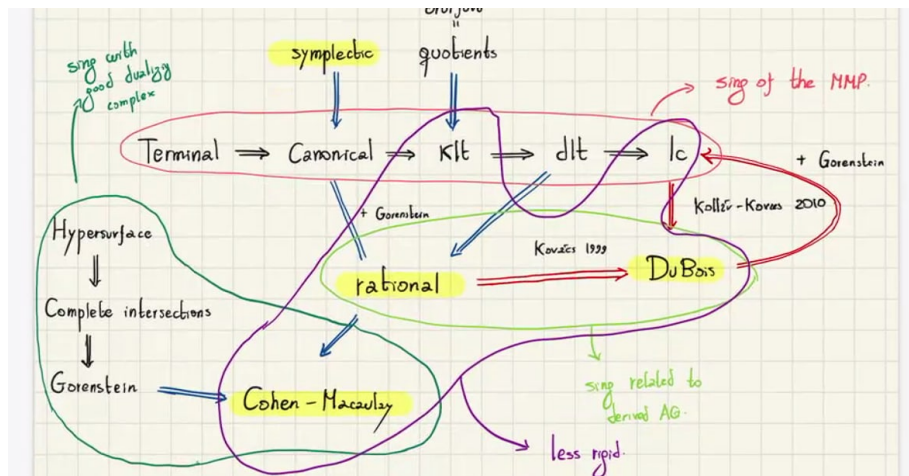 sing with
good dualizig
complex
symplectic
=
quotients
sing of the MMP.
Terminal ⇒ Canonical ⇒ Klt ⇒ dlt ⇒ lc
+ Gorenstein
+ Gorenstein
Kollár-Kovacs 2010
Hypersurface
Kovács 1999
rational
DuBois
Complete intersections
Gorenstein
Cohen-Macaulay
sing related to
derived AG.
less rigid.